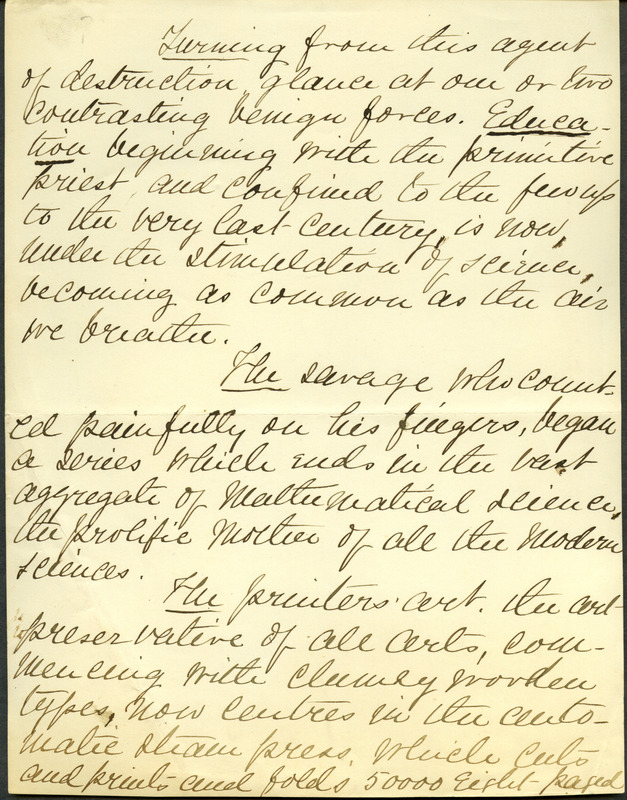 Turning from this agent
of destruction, glance at one or two
contrasting benign forces. Educa-
tion beginning with the primitive
priest, and confined to the few up
to the very last century, is now,
under the stimulation of science,
becoming as common as the air
we breathe.
The savage who count-
ed painfully on his fingers, began
a series which ends in the vast
aggregate of Mathematical science,
the prolific Mother of all the Modern
sciences.
The printers' art. the art
preservative of all arts, com-
mencing with clumsy wooden
types, now centres in the auto-
matic steam press, which cuts
and prints and folds 50000 Eight paged